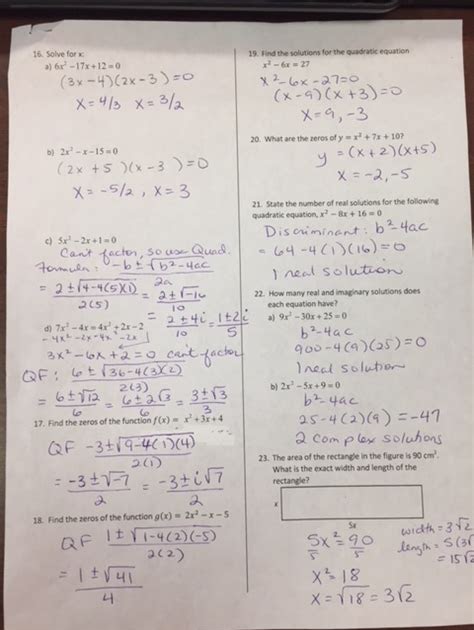 16. Solve for x:
a) 6x² −17x+12=0
(3x −4)(2x −3)=0
x= 4/3 x= 3/2
b) 2x² −x−15=0
(2x +5)(x −3)=0
x= −5/2, x=3
c) 5x² −2x+1=0
Can't factor, so use Quad.
Formula: −b±√b²−4ac
2a
= 2±√4−4(5)(1) = 2±√−16
2(5) 10
= 2±4i = 1±2i
10 5
d) 7x² −4x=4x² +2x−2
−4x² −2x −4x² −2x
3x² −6x+2=0 can't factor
QF: 6±√36−4(3)(2)
2(3)
= 6±√12 = 6±2√3 = 3±√3
6 6 3
17. Find the zeros of the function f(x) = x²+3x+4
QF −3±√9−4(1)(4)
2(1)
= −3±√−7 = −3±i√7
2 2
18. Find the zeros of the function g(x) = 2x² −x−5
QF 1±√1−4(2)(−5)
2(2)
= 1±√41
4
19. Find the solutions for the quadratic equation
x² −6x = 27
x² −6x −27=0
(x −9)(x+3)=0
x=9, −3
20. What are the zeros of y = x² +7x+10?
y=(x+2)(x+5)
x= −2, −5
21. State the number of real solutions for the following
quadratic equation, x² −8x+16=0
Discriminant: b²−4ac
= 64−4(1)(16)=0
1 real solution
22. How many real and imaginary solutions does
each equation have?
a) 9x² −30x+25=0
b²−4ac
900−4(9)(25)=0
1 real solution
b) 2x² −5x+9=0
b²−4ac
25−4(2)(9)= −47
2 complex solutions
23. The area of the rectangle in the figure is 90 cm².
What is the exact width and length of the
rectangle?
x
5x
5x² = 90
5 5
x²=18
x=√18 = 3√2
width=3√2
length=5(3√
=15√2